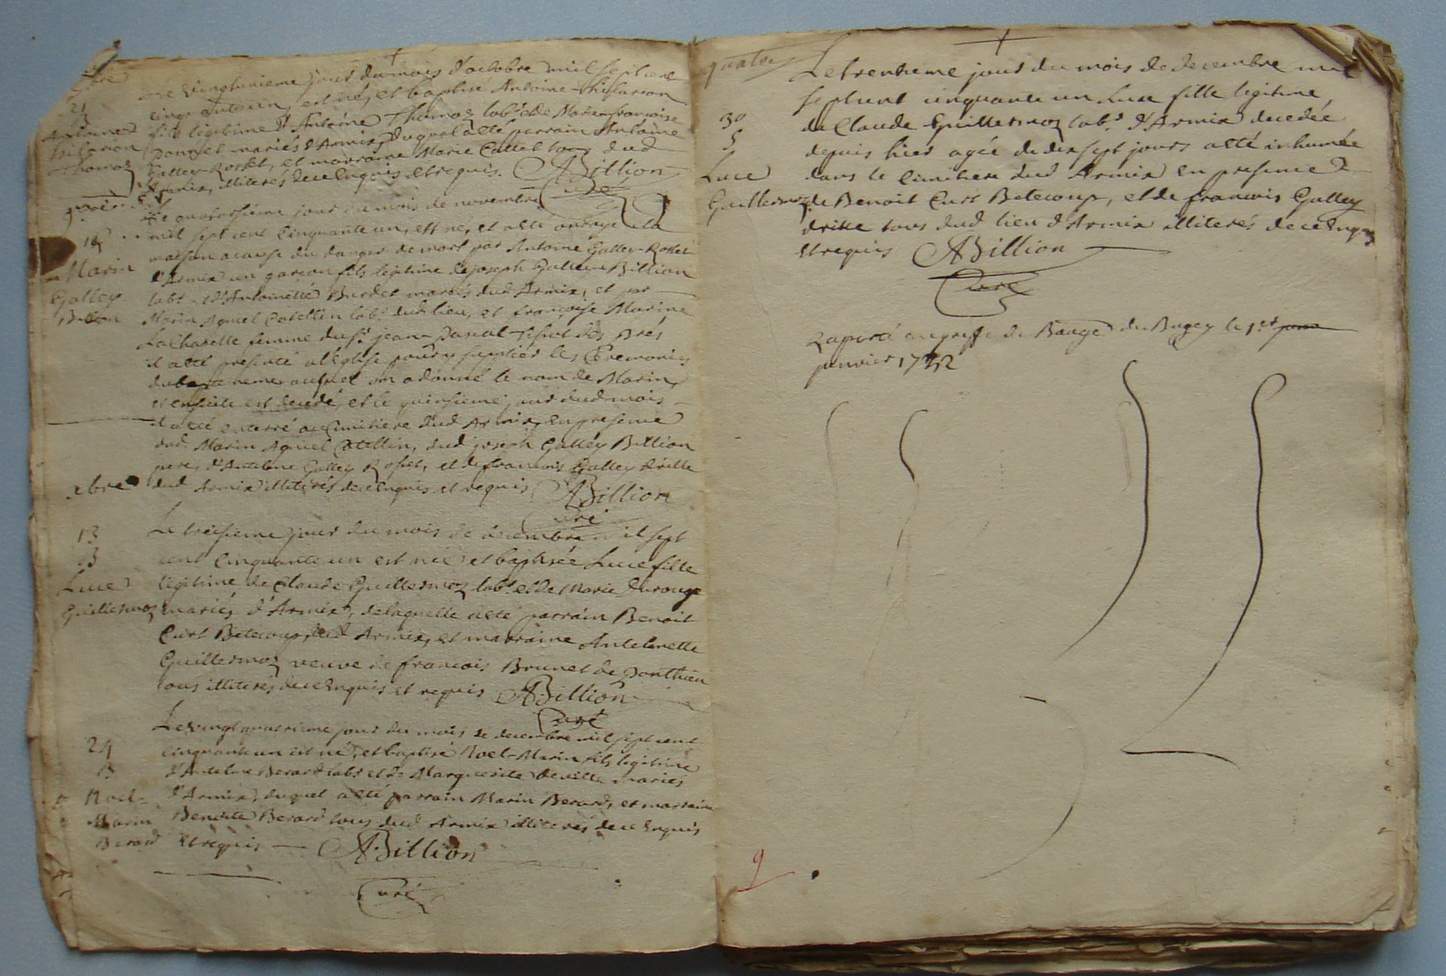 Le vingtunieme jour du mois d'octobre mil sept cent
cinquante un, est né, et baptisé Antoine-hilarion
fils legitime d'Antoine Thomaz lab.r et de Marie françoise
mariés d'Armix, duquel a été parrain Antoine
Galley-Rosset, et marraine Marie Cattel tous dud
Armix, illiterés de ce Enquis et requis. ABillion
Curé
21
Antoine
hilarion
Thomaz
Le quatorsième jour du mois de novembre
mil sept cent Cinquante un, est né, et a été ondoyé à la
maison a cause du danger de mort par Antoine Galley-Rosset
d'Armix un garçon fils legitime de joseph Galley-Billion
lab.r et d'Antoinette Burdet mariés dud Armix, et par
Marin lab.r dud lieu, et françoise Marine
femme du S.r jean
il a été presenté a l'Eglise pour y suppléer les Ceremonies
du bateme auquel on a donné le nom de Marin,
et ensuite est decedé, et le quinsieme jour dud mois
il a été enterré au Cimitiere dud Armix, En presence
dud Marin dud joseph Galley Billion
pere, d'Antelme Galley Rosset, et de francois Galley drille
dud Armix illiterés de ce Enquis et requis ABillion
Curé
14
Marin
Galley
Billion
xbre
Le treisieme jour du mois de decembre mil sept
cent Cinquante un est née et baptisée Luce fille
legitime de Claude Guillermoz lab.r et de Marie Durouge
mariés d'Armix, de laquelle a été parrain Benoit
Curt Betecoup, dud Armix, et marraine Antelmette
Guillermoz veuve de francois Brunet de Ponthieu
tous illiterés de ce Enquis et requis ABillion
Curé
13
B
Luce
Guillermoz
Le vingt quatrieme jour du mois de decembre mil sept cent
cinquante un est né, et baptisé Noel-Marin fils legitime
d'Antelme Berard lab.r et de Marguerite Deville mariés
d'Armix, duquel a été parrain Marin Berard, et marraine
Benoite Berard tous dud Armix illiterés de ce Enquis
et requis ABillion
Curé
24
B
Noel-
Marin
Berard
quatre
Le trentieme jour du mois de decembre mil
sept cent cinquante un Luce fille legitime
de Claude Guillermoz lab.r d'Armix decedée
depuis hier agée de dix sept jours a été inhumée
dans le Cimitiere dud Armix En presence
de Benoit Curt Betecoup, et de francois Galley
drille tous dud lieu d'Armix illiterés de ce Enquis
et requis ABillion
Curé
30
S
Luce
Guillermoz
Raporté au greffe de Baugé du Bugey le 1er
janvier 1752
9